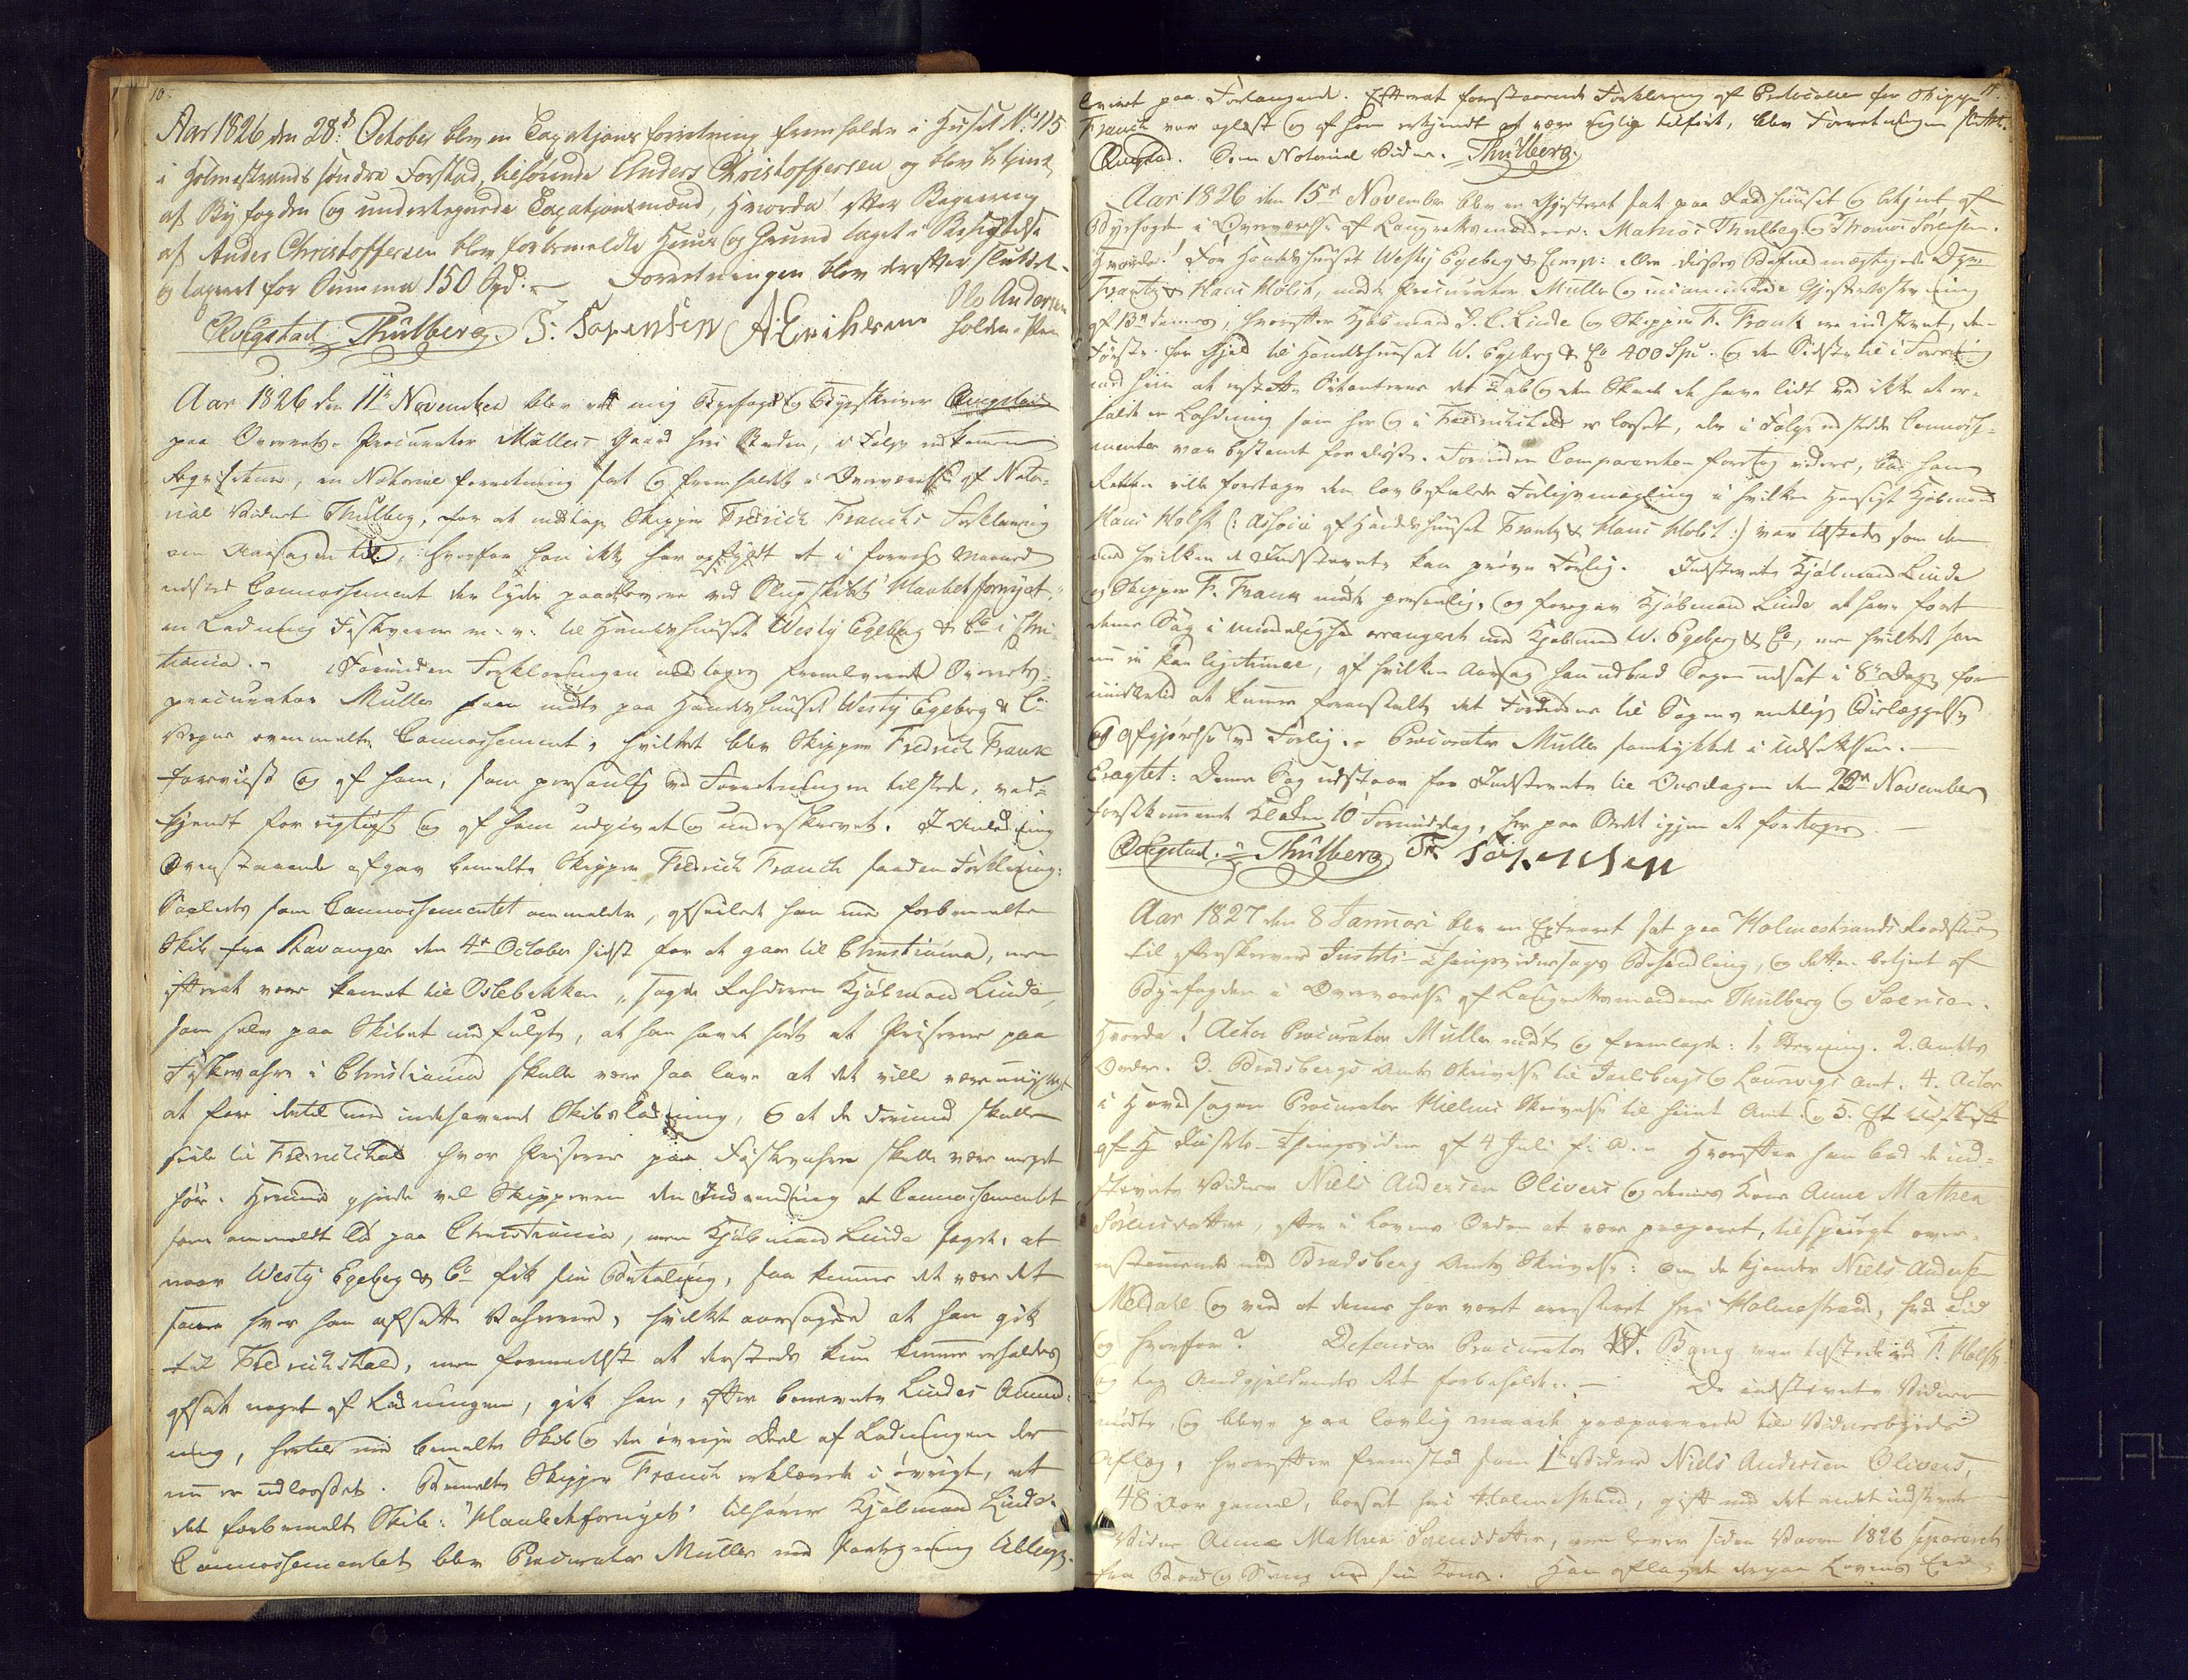 10.
Aar 1826 den 28d October blev en Taxationsforretning fremholden i Huset No 115
i Holmestrands søndre Forstad, tilhørende Anders Christoffersen og blev betjent
af Byfogden og undertegnede Taxationsmænd, Hvorda! efter Begiæring
af Anders Christoffersen blev forbemeldte Huus og Grund taget i Besigtelse
og taxeret for Summa 150 Spd. Forretningen blev derefter sluttet.
Thulberg. T: Sørensen A Erichsen Ole Andersen
holden Pen
Aar 1826 den 11te November blev af mig Byefoged og Byeskriver
paa Overrets-Procurator Müllers Gaard her i Staden, i Følge indkommen
Reqvisition, en Notarial forretning sat og fremholdt i Overværelse af Nota-
rial Vidnet Thulberg, for at modtage Skipper Fredrich Francks Forklaring
om Aarsagen til, hvorfor han ikke har opfyldt et i forrige Maaned
udsted Connossement der lyder paa at levere med Slupskibet "Haabet fornyet"
en Ladning Fiskevarer m: v: til Handelshuuset Westy Egeberg & Co i Chri-
tiania. Forinden Forklaringen modtages fremleverede Overrets-
procurator Müller som mødte paa Handelshuuset Westy Egeberg & Co
Vegne ovenmeldte Connossement, hvilket blev Skipper Fredrich Franck
foreviist og af ham, som personlig ved Forretningen tilstede, ved-
kjendt for rigtigt og af ham udgivet og underskrevet. I Anledning
Ovenstaaende afgav bemeldte Skipper Fredrich Franck saadan Forklaring:
Saaledes som Connossementet ommelder, afseilede han med forbemeldte
Skib fra Stavanger den 4de October sidst for at gaae til Christiania, men
efterat være kommet til Oslebakken, sagde Rederen Kjøbmand Linde,
som selv paa Skibet medfulgte, at han havde hørt at Priserne paa
Fiskevahre i Christiania skulle være saa lave at det ville være unyttigt
at fare dertil med indehavende Skibsladning, og at de derimod skulle
seile til Fredrichshald hvor Priserne paa Fiskevahre skulle være meget
høie. Herimod gjorde vel Skipperen den Indvending at Connossementet
som ommeldt lød paa Christiania, men Kjøbmand Linde sagde, at
naar Westy Egeberg & Co fik sin Betaling, saa kunne det være det
samme hvor han afsatte Vahrerne, hvilket aarsagede at han gik
til Fredrichshald, men formedelst at dersteds kun kunne erholdes
afsat noget af Ladningen, gik han, efter benævnte Lindes Anmod-
ning, hertil med bemeldte Skib og den øvrige Deel af Ladningen der
nu er udlosset. Bemeldte Skipper Franck erklærede i øvrigt, at
det forbemeldte Skib: "Haabet fornyet" tilhører Kjøbmand Linde.
Connossementet blev Procurator Müller med Paategning tillagt
leveret paa Forlangende. Efterat foranstaaende Forklaring af Protocollen for Skipper
Franck var oplæst og af ham erkjendt at være rigtig tilført, blev Forretningen sluttet.
Som Notarial Vidne. Thulberg.
Aar 1826 den 15de November blev en Gjesteret sat paa Raadhuuset og betjent af
Byefogden i Overværelse af Laugrettesmændene: Mathias Thulberg og Thomas Sørensen.
Hvorda! For Handelshuuset Westy Egeberg & Comp: eller dissses Befuldmægtigede
Frantz & Hans Holst, mødte Procurator Müller og Gjesteretsstevning
af 13de dennes, hvorefter Kjøbmand P. C. Linde og Skipper F. Frank ere indstevnt, den
Første for Gjeld til Handelshuuset W. Egeberg & Co 400 Spd. og den Sidste til i Forening
med hiin at erstatte Citanterne det Tab og den Skade de have lidt ved ikke at er-
holde en Ladning som her og i Fredrichshald er losset, der i Følge udstedte Connosse-
menter var bestemt for disse. Forinden Comparenten foretog videre, bad han
Retten ville foretage den lovbefalede Forligsmægling i hvilken Hensigt Kjøbmand
Hans Holst (: Associe af Handelshuuset Frantz & Hans Holst :) var tilstede som den
med hvilken de Indstevnte kan prøve Forlig. Indstevnte Kjøbmand Linde
og Skipper F. Franck mødte personlig, og foregav Kjøbmand Linde at have faaet
denne Sag i Mindelighed arrangeret med Kjøbmand W. Egeberg & Co, men hvilket han
nu ei kan legitimere, af hvilken Aarsag han udbad Sagen udsat i 8te Dage for
imidlertid at kunne foranstalte det Fornødne til Sagens endelig Bielæggelse
og afgjørelse ved Forlig. Procurator Müller samtykkede i Udsættelsen.
Eragtet: Denne Sag udstaar for Indstevnte til Onsdagen den 22de November
førstkommende Klokken 10 Formiddag, her paa Stedet igjen at foretages
Thulberg. Th Sørensen
Aar 1827 den 8 Januari blev en Extraret sat paa Holmestrands Raadstue
til efterskrevne Justits-Thingsvidnesags Behandling, og Retten betjent af
Byefogden i Overværelse af Laugrettesmændene Thulberg og Sørensen.
Hvorda! Actor Procurator Müller mødte og fremlagde: 1, Stevning. 2. Amtets
Ordre. 3. Bradsbergs Amts Skrivelse til Jarlsbergs og Laurvigs Amt. 4. Actor
i Hovedsagen Procurator Hielms Skrivelse til hiint Amt. og 5. Et Udskrift
af Et Justits-Thingsvidne af 4 Juli f: A. Hvorefter han bad de ind-
stevnte Vidner Niels Andersen Olivers og dennes Kone Anne Mathea
Sørensdatter, efter i Lovens Orden at være præparet, tilspurgt over-
eensstemmende med Bradsberg Amts Skrivelse: om de kjender Niels Andersen
Meldale og ved at denne har været arresteret her i Holmestrand, hvad Tid
og hvorfor? Defensor Procurator Bang var tilstede ved F. Holst
og tog Angjeldendes Ret forbeholden. De indstevnte Vidner
mødte, og bleve paa lovlig maade præparerede til Vidnesbyrds
Aflæg, hvorefter fremstod som 1te Vidne Niels Andersen Olivers,
48 Aar gammel, boesat her i Holmestrand, gift med det andet indstevnte
Vidne Anne Mathea Sørensdatter, men lever siden Vaaren 1826 separeret
fra Bord og Seng med sin Kone. Han aflagde derpaa Lovens Eed